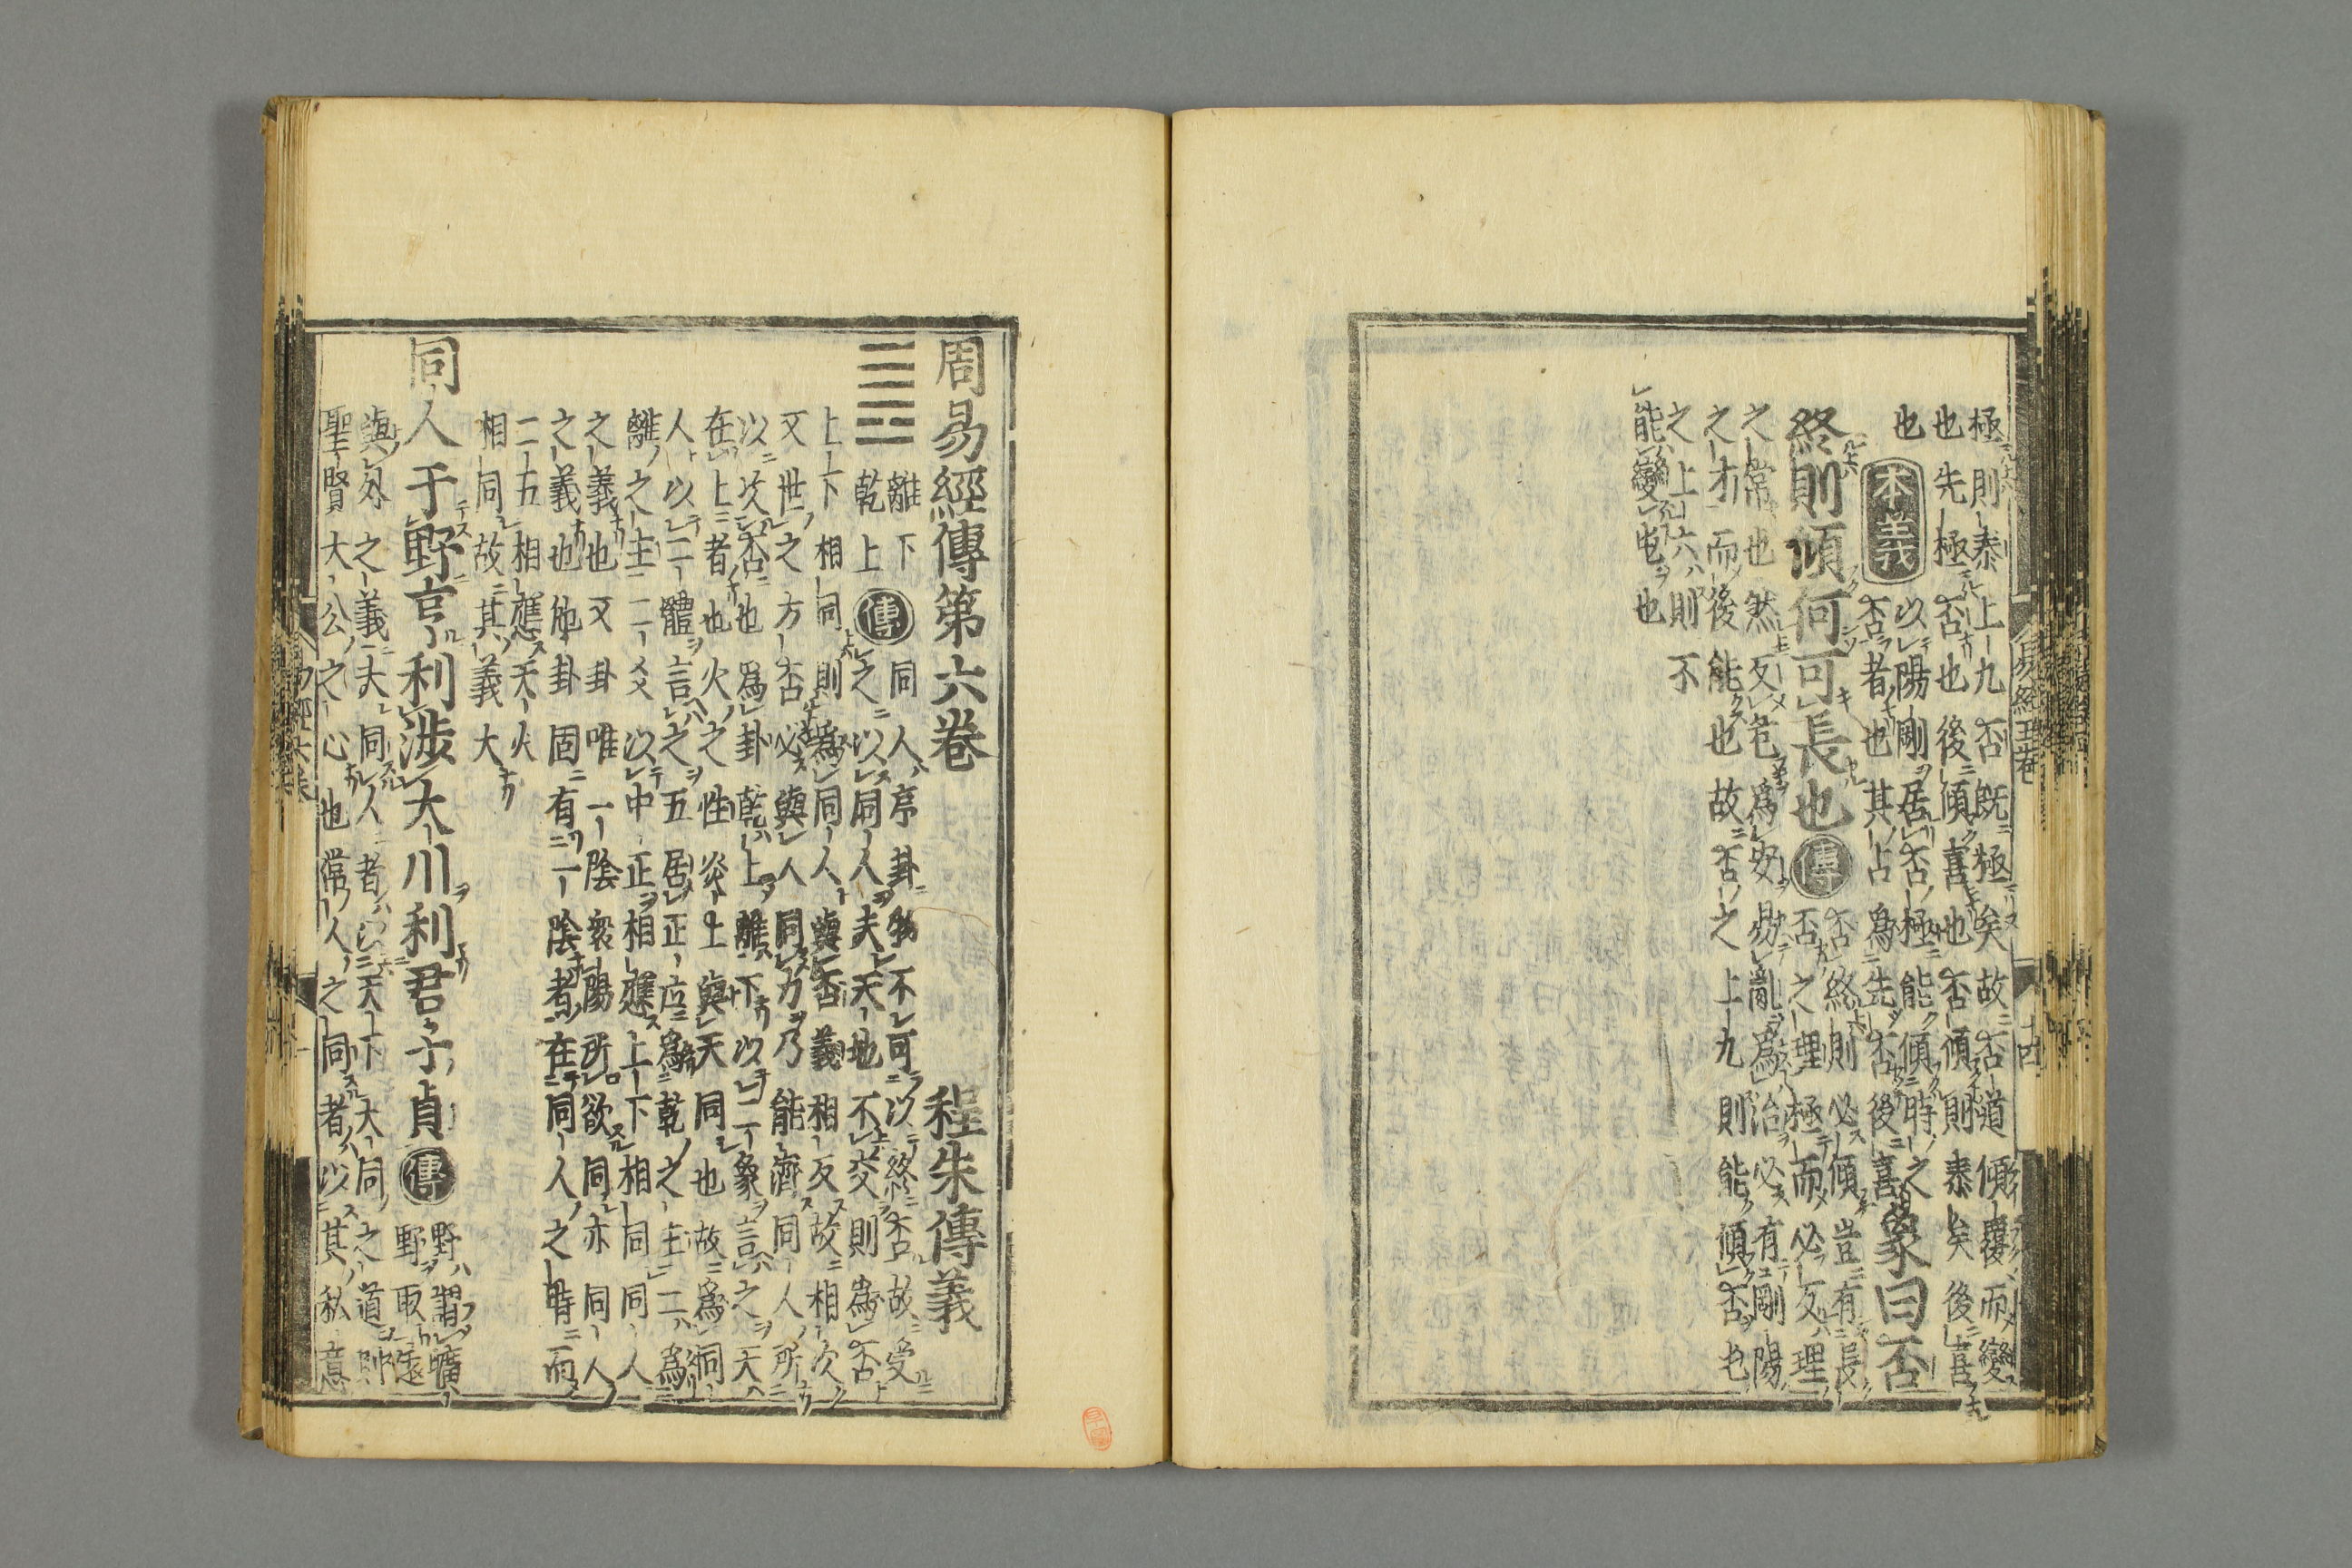 極則泰上九否既極矣故否道傾覆而變
也先極否也後傾喜也否傾則泰矣後喜
也 本義 以陽剛居否極能傾時之
否者也其占爲先否後喜 象曰否
終則傾何可長也 傳 否終則必傾豈有長
否之理極而必反理
之常也然反危爲安易亂爲治必有剛陽
之才而後能也故否之上九則能傾否屯
之上六則不
能變屯也
易經五卷 十四
周易經傳第六卷 程朱傳義
離下
乾上 傳 同人序卦物不可以終否故受
之以同人夫天地不交則爲否
上下相同則爲同人與否義相反故相次
又世之方否必與人同力乃能濟同人所
以次否也爲卦乾上離下以二象言之天
在上者也火之性炎上與天同也故爲同
人以二體言之五居正位爲乾之主二爲
離之主二爻以中正相應上下相同同人
之義也又卦唯一陰衆陽所欲同亦同人
之義也他卦固有一陰者在同人之時而
二五相應天火
相同故其義大
同人于野亨利涉大川利君子貞 傳 野謂曠
野取遠
與外之義夫同人者以天下大同之道則
聖賢大公之心也常人之同者以其私意